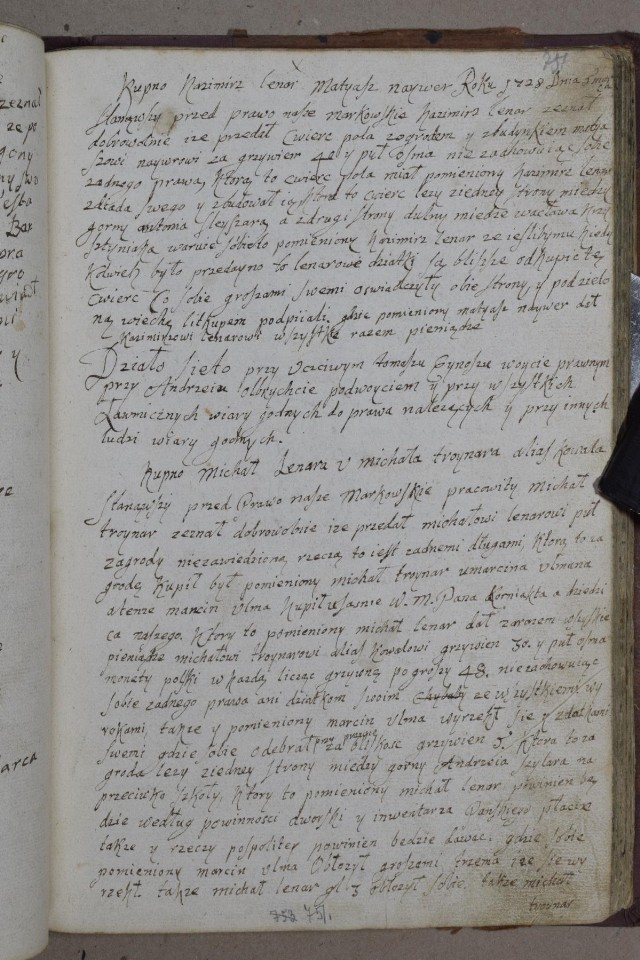 751
Kupno Kazimirz lenar Matyasz naywer Roku 1728 Dnia
Stanąwszy przed prawo nasze markowskie Kazimirz lenar zeznał
dobrowolnie ize przedał Cwierc pola zogrodem y zbudynkiem matya
szowi naywrowi za grzywien 42 y puł osma nie zachowuiąc sobie
zadnego prawa, Ktorą to cwierc pola miał pomieniony Kazimirz lenar
zdziada swego y zbudował ią, Ktora to cwierc lezy ziedney strony miedzy
gorny antonia szleyszara a zdrugi strony dulny miedze wacława Krzy
sztyniaka waruie sobie to pomieniony Kazimirz lenar ze iesliby mu kiedy
Kolwiek było przedayno to lenarowe dziatki są blisze odkupic tę
Cwierc Co sobie groszami swemi oswiadczyły obie strony, y podzielo
ną wiechę litkupem podpiiali, gdzie pomieniony matyasz naywer dał
Kazimirzowi lenarowi wszystkie razem pieniądze
Działo sie to przy Uczciwym tomaszu Cynoszu woycie prawnym
przy Andrzeiu olbrychcie podwoyciem y przy wszystkich
Ławnicznych wiary godnych do prawa nalezących y przy innych
ludzi wiary godnych.
Kupno Michał Lenara u michała troynara alias Kowala
Stanąwszy przed Prawo nasze Markowskie pracowity Michał
troynar zeznał dobrowolnie ize przedał michałowi lenarowi puł
zagrody niezawiedzioną, rzeczą to iest zadnemi długami, Ktorą to za
grodę Kupił był pomieniony michał troynar u marcina ulmana
a tenze marcin ulma Kupił własnie W. M. Pana Korniakta a dziedzi
ca naszego, Ktory to pomieniony michał lenar dał zarazem wszystkie
pieniądze michałowi troynarowi alias Kowalowi grzywien 30. y puł osma
monety polski w kazdą licząc grzywnę po groszy 48. niezachowuiąc
sobie zadnego prawa ani dziatkom swoim ze wszystkiemi wy
rokami, takze y pomieniony marcin ulma wyrzekł sie y zdziatkami
swemi gdzie sobie odebrał przy przyiq za bliskosc grzywien 5. Ktora to za
groda lezy ziedney strony miedzy gorny Andrzeia szylara na
przeciwko szkoły, Ktory to pomieniony michał lenar powinien bę
dzie według powinnosci dworski y inwentarza Panskiego płacic
takze y rzeczy pospolitey powinien bedzie dawac. gdzie sobie
pomieniony marcin ulma obłozył groszami trzema ize sie wy
rzekł. takze michał lenar gl 3 obłozył sobie. takze michał
troynar
752 751.